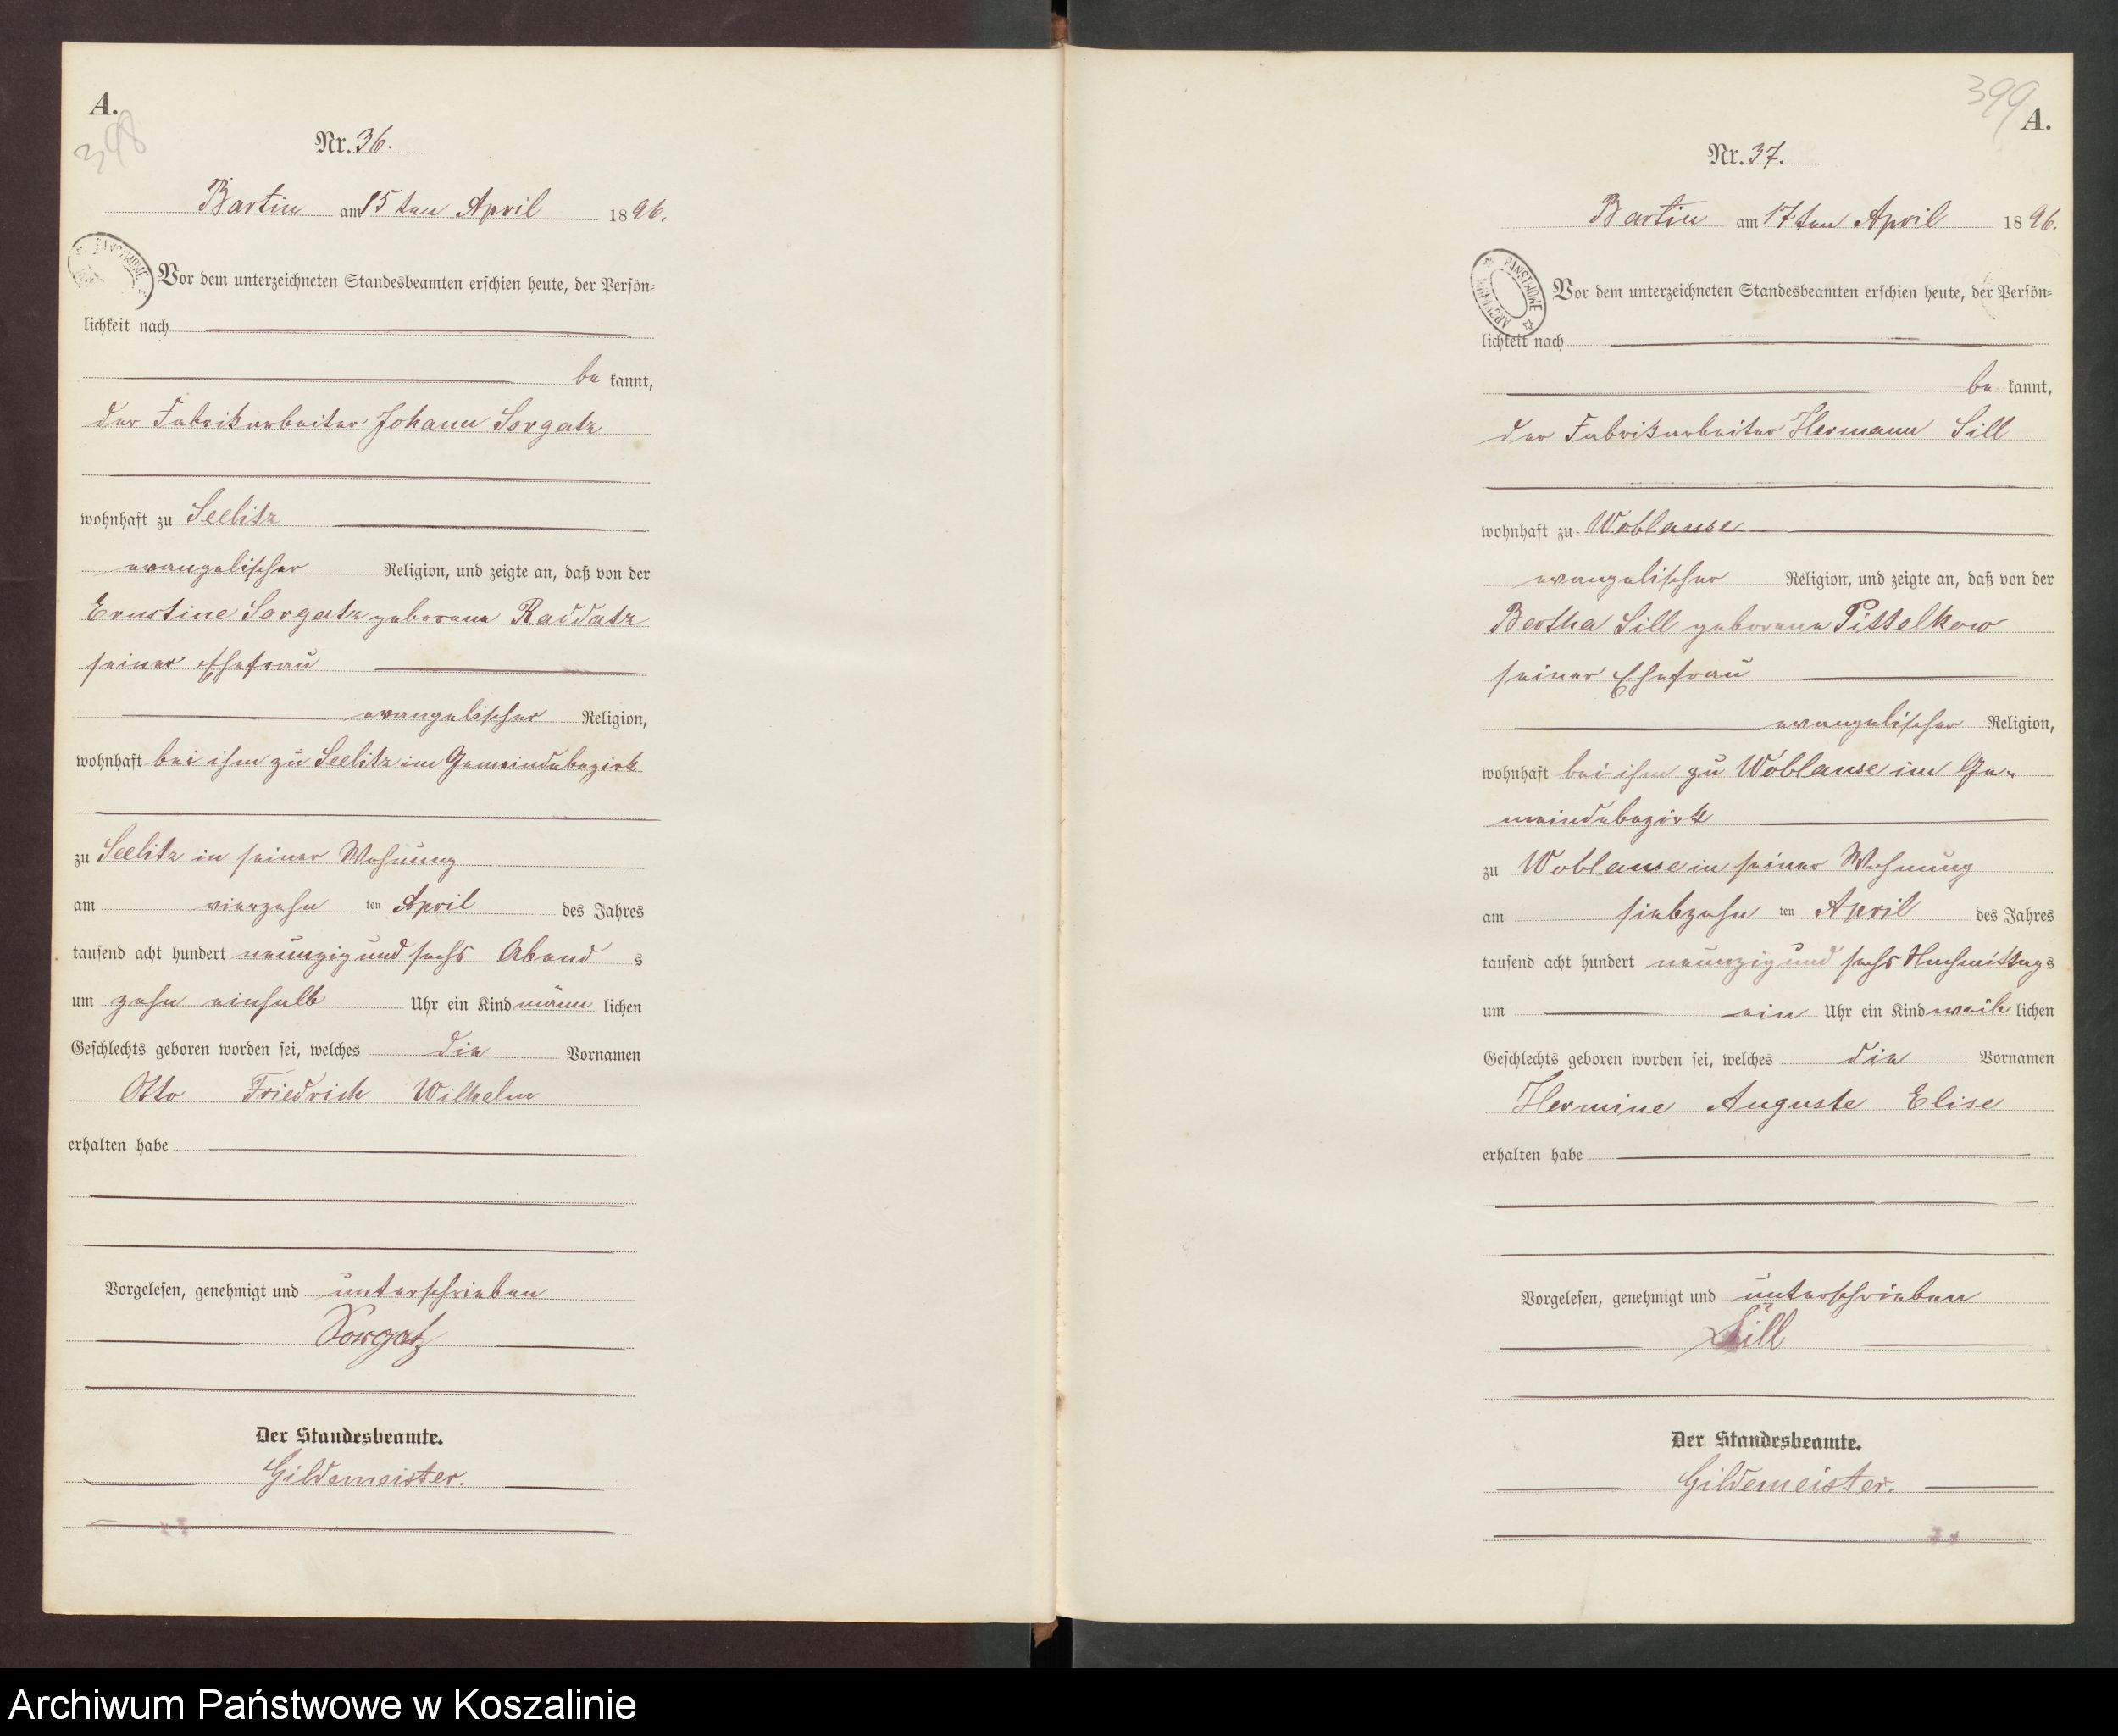 A.
398
Nr. 36.
Bartin am 15ten April 1896.
Vor dem unterzeichneten Standesbeamten erschien heute, der Persön=
lichkeit nach
be kannt,
der Fabrikarbeiter Johann Sorgatz
wohnhaft zu Seelitz
evangelischer Religion, und zeigte an, daß von der
Ernstine Sorgatz geborene Raddatz
seiner Ehefrau
evangelischer Religion,
wohnhaft bei ihm zu Seelitz im Gemeindebezirk
zu Seelitz in seiner Wohnung
am vierzehn ten April des Jahres
tausend acht hundert neunzig und sechs Abend s
um zehn einhalb Uhr ein Kind männ lichen
Geschlechts geboren worden sei, welches die Vornamen
Otto Friedrich Wilhelm
erhalten habe
Vorgelesen, genehmigt und unterschrieben
Sorgatz
Der Standesbeamte.
Gildemeister.
399
A.
Nr. 37.
Bartin am 17ten April 1896.
PANSTWOWE ARCHIWUM
Vor dem unterzeichneten Standesbeamten erschien heute, der Persön=
lichkeit nach
be kannt,
der Fabrikarbeiter Hermann Sill
wohnhaft zu Woblanse
evangelischer Religion, und zeigte an, daß von der
Bertha Sill geborene Pittelkow
seiner Ehefrau
evangelischer Religion,
wohnhaft bei ihm zu Woblanse im Ge-
meindebezirk
zu Woblanse in seiner Wohnung
am siebzehn ten April des Jahres
tausend acht hundert neunzig und sechs Nachmittag s
um ein Uhr ein Kind weib lichen
Geschlechts geboren worden sei, welches die Vornamen
Hermine Auguste Elise
erhalten habe
Vorgelesen, genehmigt und unterschrieben
Sill
Der Standesbeamte.
Gildemeister.
Archiwum Państwowe w Koszalinie